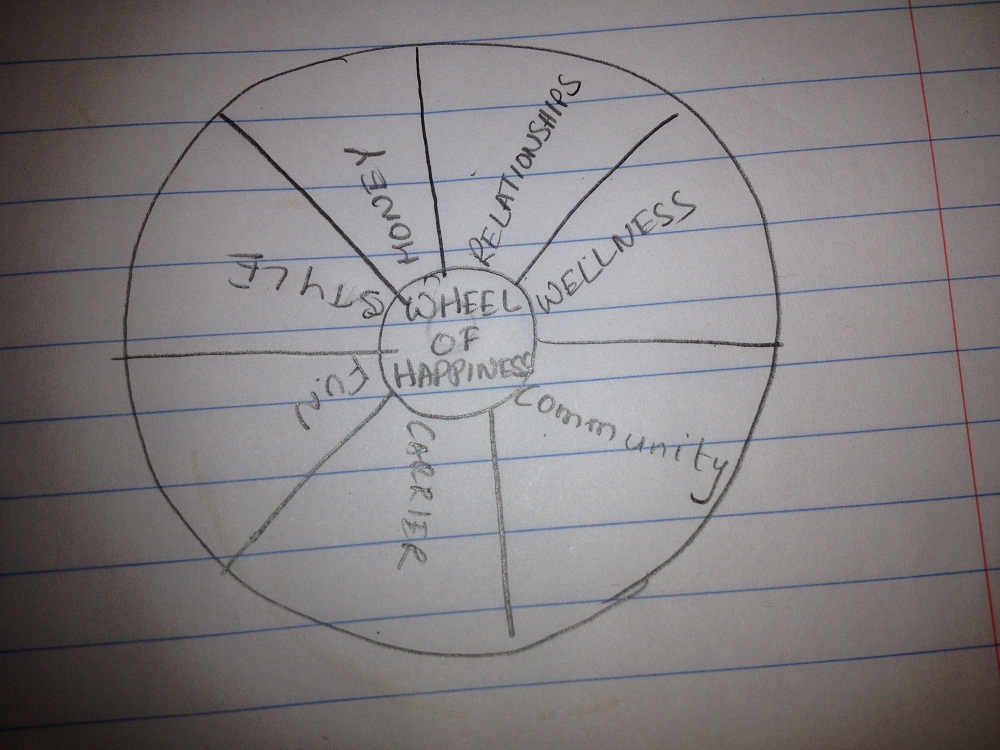 WHEEL
OF
HAPPINESS
RELATIONSHIPS
WELLNESS
Community
CARRIER
FUN
STYLE
MONEY